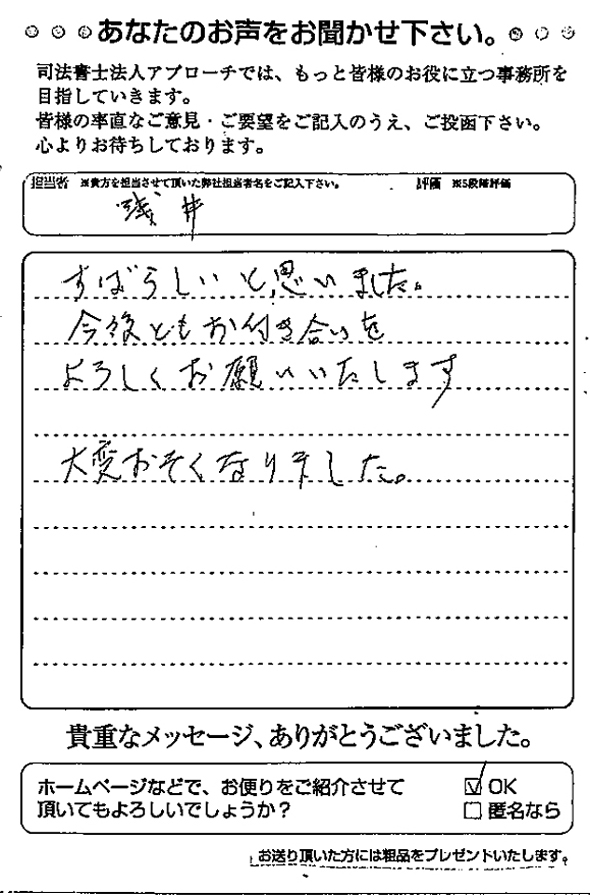 あなたのお声をお聞かせ下さい。
司法書士法人アプローチでは、もっと皆様のお役に立つ事務所を
目指していきます。
皆様の率直なご意見・ご要望をご記入のうえ、ご投函下さい。
心よりお待ちしております。
担当者 ※貴方を担当させて頂いた弊社担当者名をご記入下さい。 評価 ※5段階評価
浅井
すばらしいと思いました。
今後ともお付き合いを
よろしくお願いいたします
大変おそくなりました。
貴重なメッセージ、ありがとうございました。
ホームページなどで、お便りをご紹介させて ☑ OK
頂いてもよろしいでしょうか? □ 匿名なら
お送り頂いた方には粗品をプレゼントいたします。